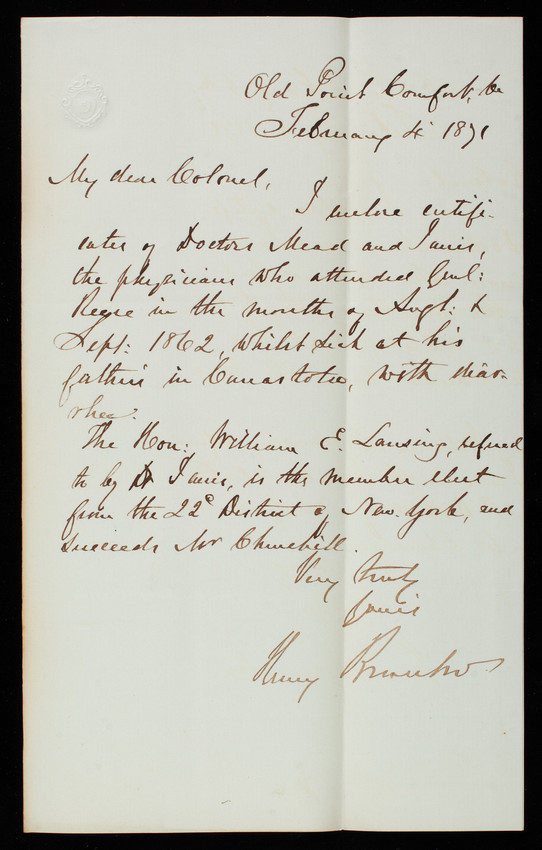 Old Point Comfort, Va
February 4 1871
My dear Colonel,
I enclose certifi-
cates of Doctors Mead and Jarvis,
the physicians who attended Genl:
in the months of Augt: &
Sept: 1862, whilst sick at his
father's in Canastota, with diar-
rhea.
The Hon: William E. Lansing, referred
to by Dr Jarvis, is the member elect
from the 22d District of New York, and
succeeds Mr Churchill.
Very truly
yours
Henry